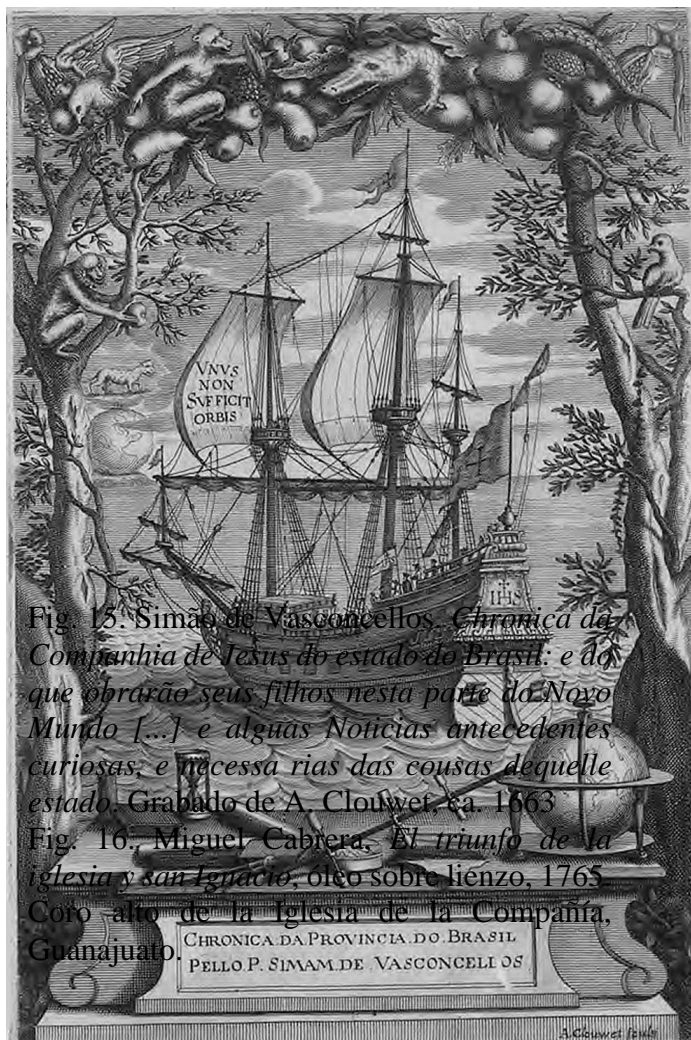 VNVS
NON
SVFFICIT
ORBIS
IHS
Fig. 15. Simão de Vasconcellos. Chronica da
Companhia de Jesus do estado do Brasil: e do
que obrarão seus filhos nesta parte do Novo
Mundo [...] e alguas Noticias antecedentes
curiosas, e necessa rias das cousas dequelle
estado. Grabado de A. Clouwet, ca. 1663
Fig. 16. Miguel Cabrera, El triunfo de la
iglesia y san Ignacio, óleo sobre lienzo, 1765.
Coro alto de la Iglesia de la Compañía,
Guanajuato.
CHRONICA.DA.PROVINCIA.DO.BRASIL
PELLO.P.SIMAM.DE.VASCONCELLOS
A.Clouwet sculp